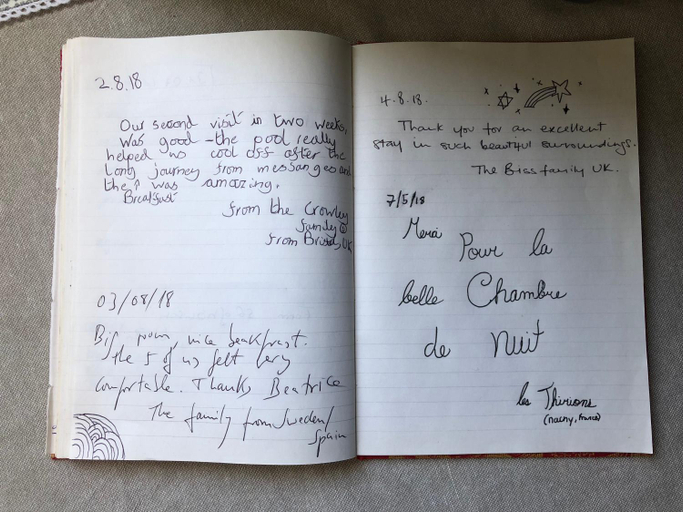 2.8.18
Our second visit in two weeks,
was good - the pool really
helped us cool off after the
long journey from messanges and
the ↑ was amazing.
Breakfast
from the Crowley
family ☺
from Bristol, UK
03/08/18
Big room, nice breakfast.
The 5 of us felt very
comfortable. Thanks Beatrice
The family from Sweden/
Spain
4.8.18.
Thank you for an excellent
stay in such beautiful surroundings.
The Biss family UK.
7/5/18
Merci
Pour la
belle Chambre
de Nuit
les Thirions
(nancy, France)